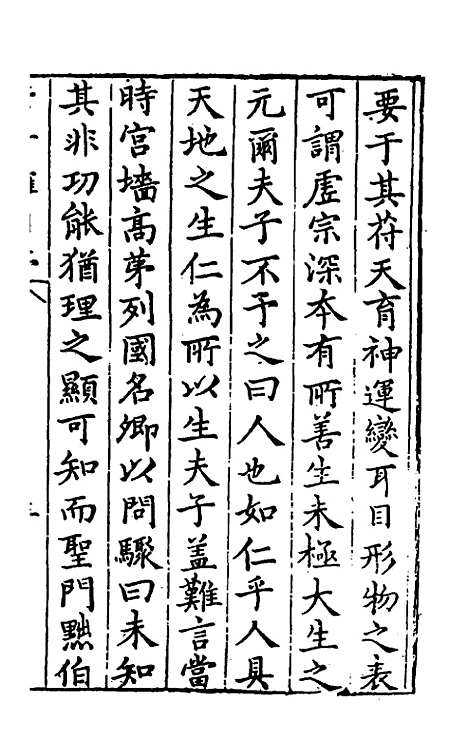 要于其符天育神運變耳目形物之表
可謂虛宗深本有所善生未極大生之
元爾夫子不予之曰人也如仁乎人具
天地之生仁為所以生夫子蓋難言當
時宮墻高苐列國名卿以問驟曰未知
其非功能猶理之顯可知而聖門黜伯